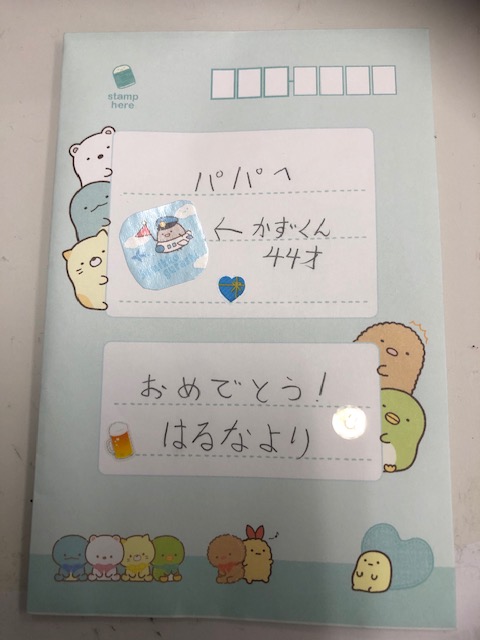 stamp
here
パパへ
← かずくん
44才
おめでとう!
はるなより